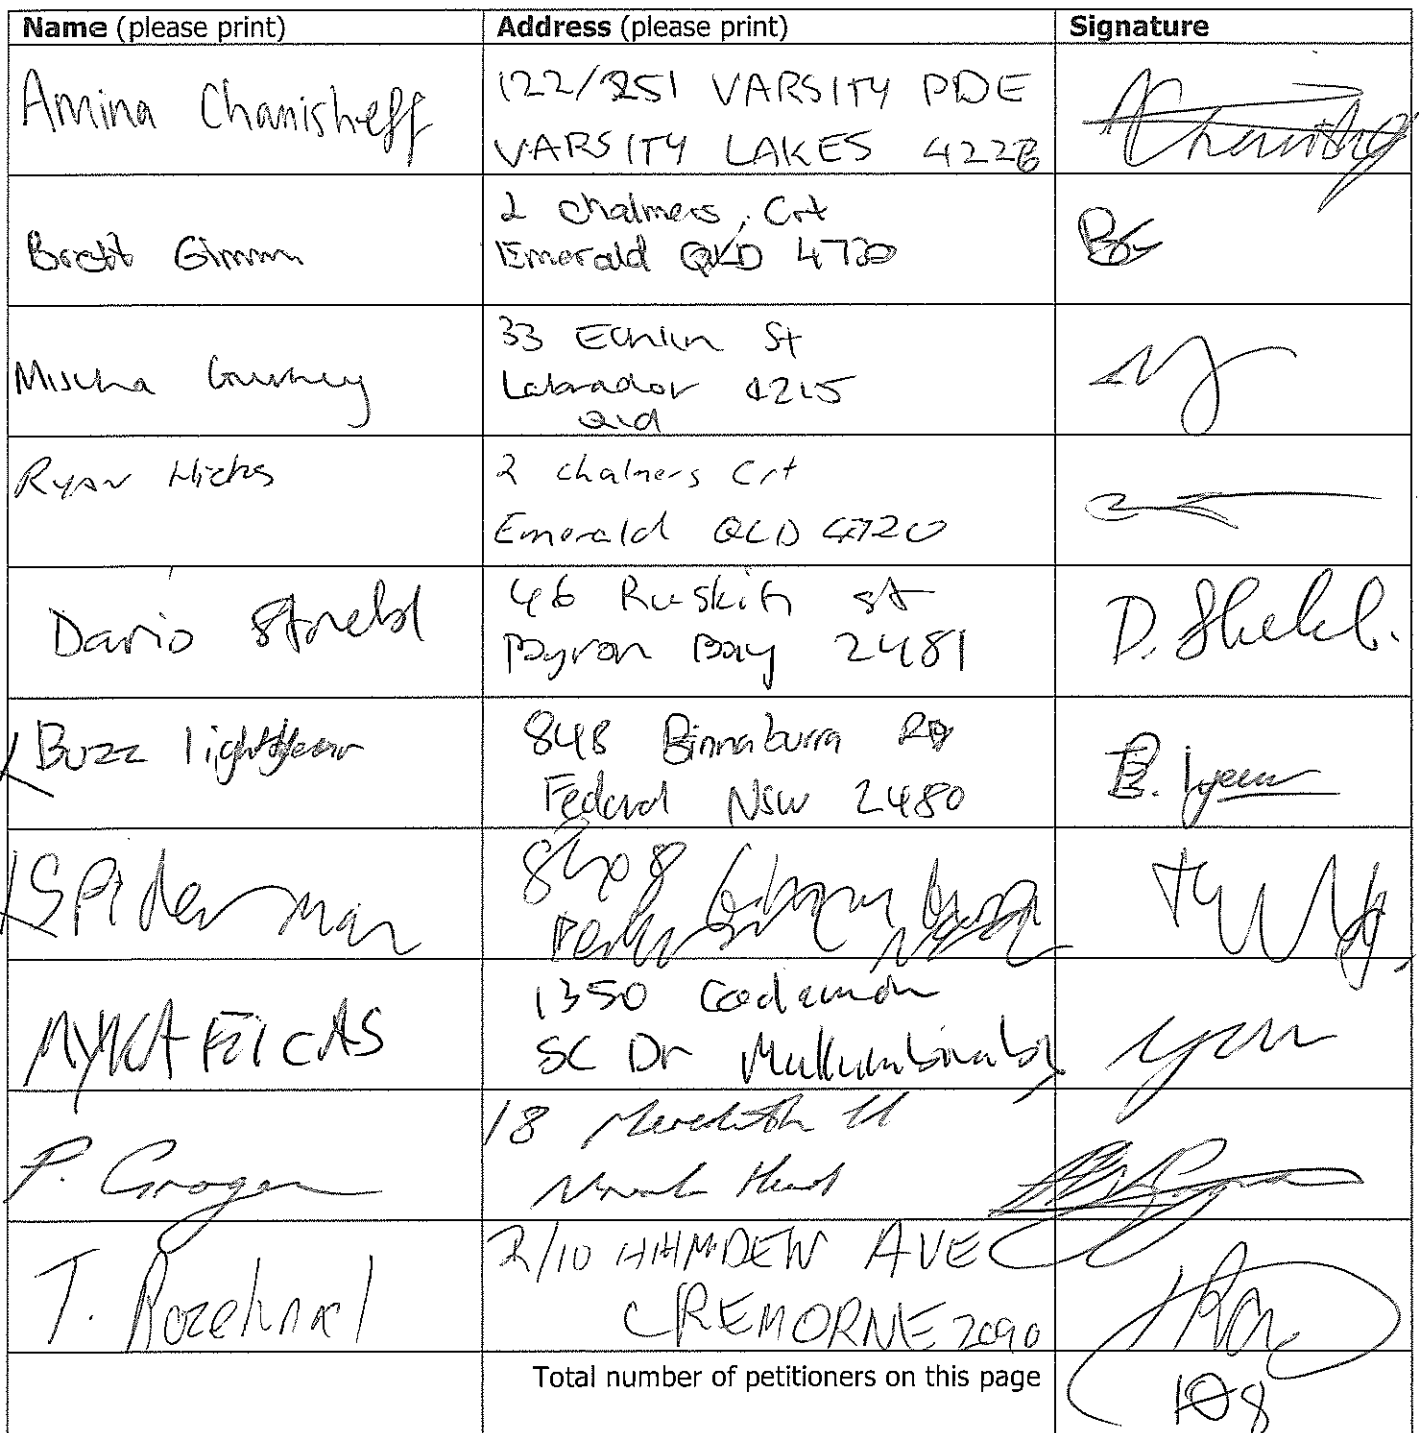 Name (please print) Address (please print) Signature
Amina Chanisheff 122/251 VARSITY PDE
VARSITY LAKES 4226
Brett Gimm 2 Chalmers Crt
Emerald QLD 4720
Mischa Gurney 33 St
Labrador 4215
Qld
Ryan Hicks 2 chalmers Crt
Emerald QLD 4720
Dario Strebl 46 Ruskin st D. Strebl.
Byron Bay 2481
Buzz lightyear 848 Binnaburra Rd B. lyear
Federal NSW 2480
Spiderman
1350
Dr Mullumbimby
P. Grogan 18 Meredith
Head
T. Rozehnal 2/10 AVE
CREMORNE 2090
Total number of petitioners on this page 8